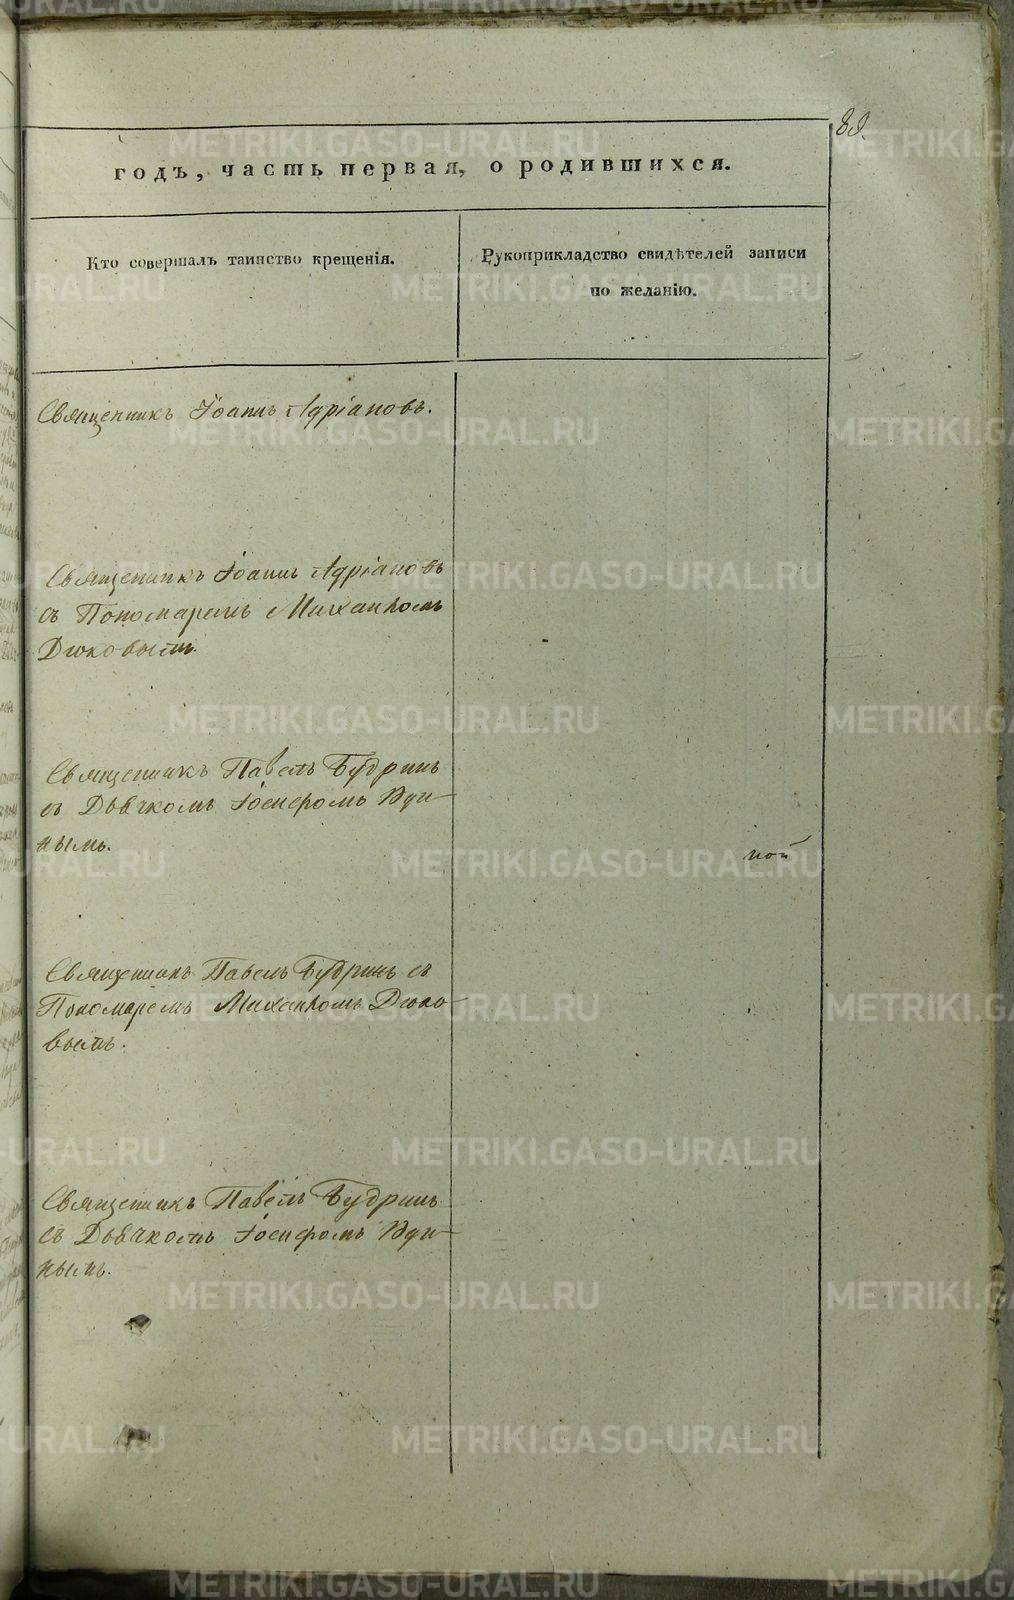 89.
годъ, часть первая, о родившихся.
Кто совершалъ таинство крещенія.
Рукоприкладство свидѣтелей записи
по желанію.
Священникъ Іоаннъ Адріановъ.
Священникъ Іоаннъ Адріановъ
съ Пономаремъ Михаиломъ
Дюковымъ.
Священникъ Павелъ Будринъ
съ Дьячкомъ Іосифомъ Уди-
нымъ.
ной
Священникъ Павелъ Будринъ съ
Пономаремъ Михаиломъ Дюко-
вымъ.
Священникъ Павелъ Будринъ
съ Дьячкомъ Іосифомъ Уди-
нымъ.
METRIKI.GASO-URAL.RU